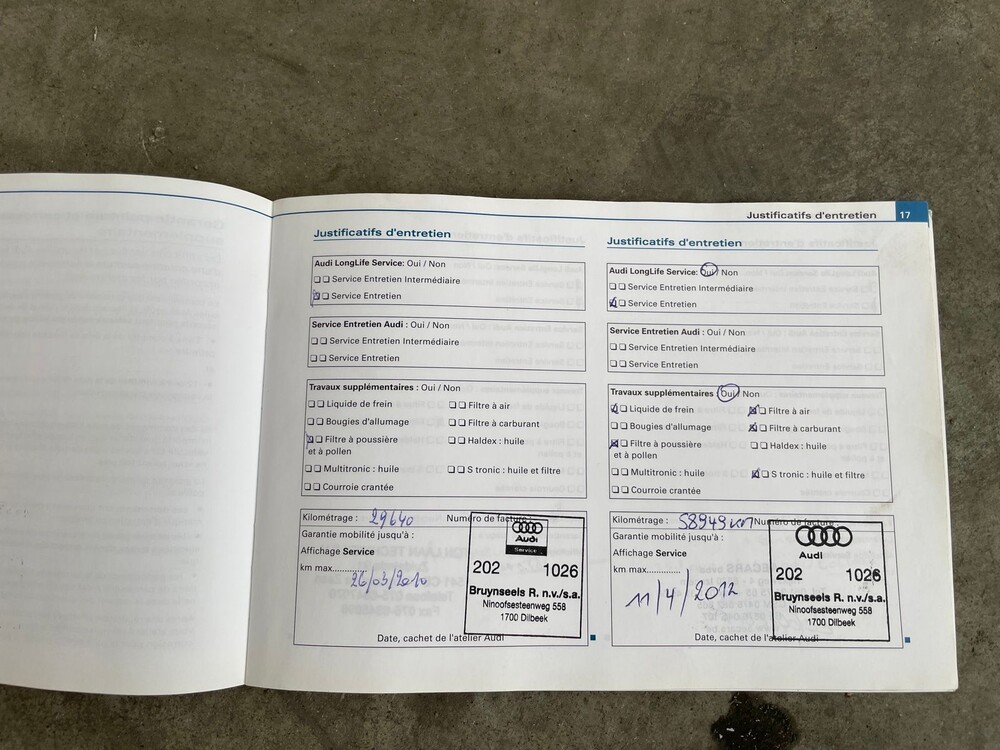 Justificatifs d'entretien 17
Justificatifs d'entretien
Audi LongLife Service: Oui / Non
❑ ❑ Service Entretien Intermédiaire
❑ ❑ Service Entretien
Service Entretien Audi : Oui / Non
❑ ❑ Service Entretien Intermédiaire
❑ ❑ Service Entretien
Travaux supplémentaires : Oui / Non
❑ ❑ Liquide de frein
❑ ❑ Filtre à air
❑ ❑ Bougies d'allumage
❑ ❑ Filtre à carburant
❑ ❑ Filtre à poussière
et à pollen
❑ ❑ Haldex : huile
❑ ❑ Multitronic : huile
❑ ❑ S tronic : huile et filtre
❑ ❑ Courroie crantée
Kilométrage : 29640
Numéro de facture :
Garantie mobilité jusqu'à :
Affichage Service
km max..............
26/03/2010
Audi
Service
202 1026
Bruynseels R. n.v./s.a.
Ninoofsesteenweg 558
1700 Dilbeek
Date, cachet de l'atelier Audi
Justificatifs d'entretien
Audi LongLife Service: Oui / Non
❑ ❑ Service Entretien Intermédiaire
❑ ❑ Service Entretien
Service Entretien Audi : Oui / Non
❑ ❑ Service Entretien Intermédiaire
❑ ❑ Service Entretien
Travaux supplémentaires : Oui / Non
❑ ❑ Liquide de frein
❑ ❑ Filtre à air
❑ ❑ Bougies d'allumage
❑ ❑ Filtre à carburant
❑ ❑ Filtre à poussière
et à pollen
❑ ❑ Haldex : huile
❑ ❑ Multitronic : huile
❑ ❑ S tronic : huile et filtre
❑ ❑ Courroie crantée
Kilométrage : 58949 km
Numéro de facture :
Garantie mobilité jusqu'à :
Affichage Service
km max..............
11/4/2012
Audi
202 1026
Bruynseels R. n.v./s.a.
Ninoofsesteenweg 558
1700 Dilbeek
Date, cachet de l'atelier Audi